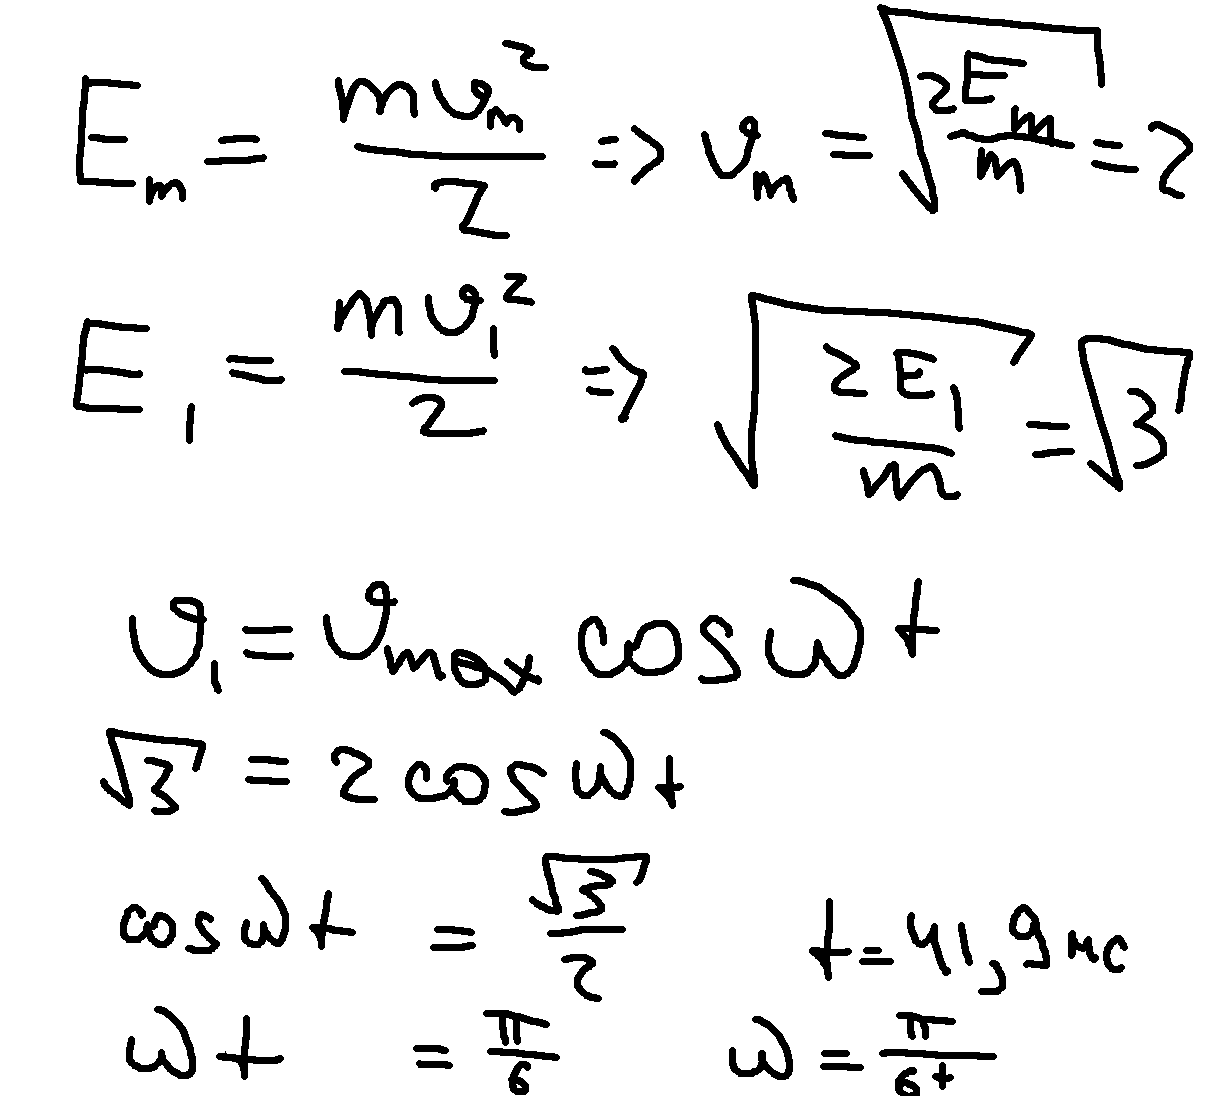 E_m = mυ_m²/2 => υ_m = √(2E_m/m) = 2
E_1 = mυ_1²/2 => √(2E_1/m) = √3
υ_1 = υ_max cos ω t
√3 = 2 cos ω t
cos ω t = √3/2 t = 41,9 мс
ω t = π/6 ω = π/6t